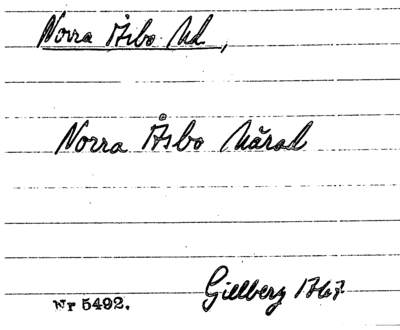 Norra Åsbo Hd,
Norra Åsbo Härad
Gillberg 1767
Nr 5492.